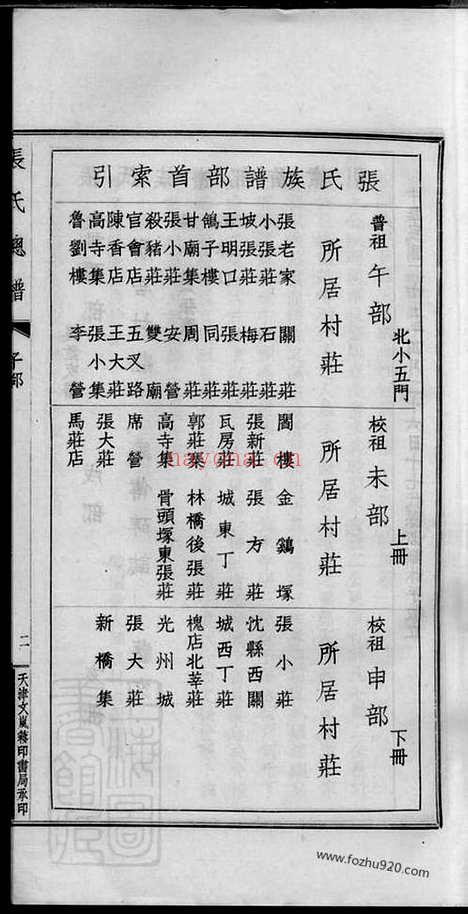 張氏族譜部首索引
普祖 午部 北小五門
所居村莊
張老家 關莊
小張莊 石莊
坡張莊 梅莊
王明口 張莊
鴿子樓 同莊
甘廟集 周莊
張小莊 安營
殺豬莊 雙廟
官會店 五叉路
陳香店 王大莊
高寺集 張小集
魯劉樓 李營
校祖 未部 上冊
所居村莊
閻樓 金鷄塚
張新莊 張方莊
瓦房莊 城東丁莊
郭莊集 林橋後張莊
高寺集 骨頭塚東張莊
席營
張大莊
馬莊店
校祖 申部 下冊
所居村莊
張小莊
沈縣西關
城西丁莊
槐店北莘莊
光州城
張大莊
新橋集
張氏總譜
子部
二
天津文嵐簃印書局承印
nayona.cn
www.fozhu920.com